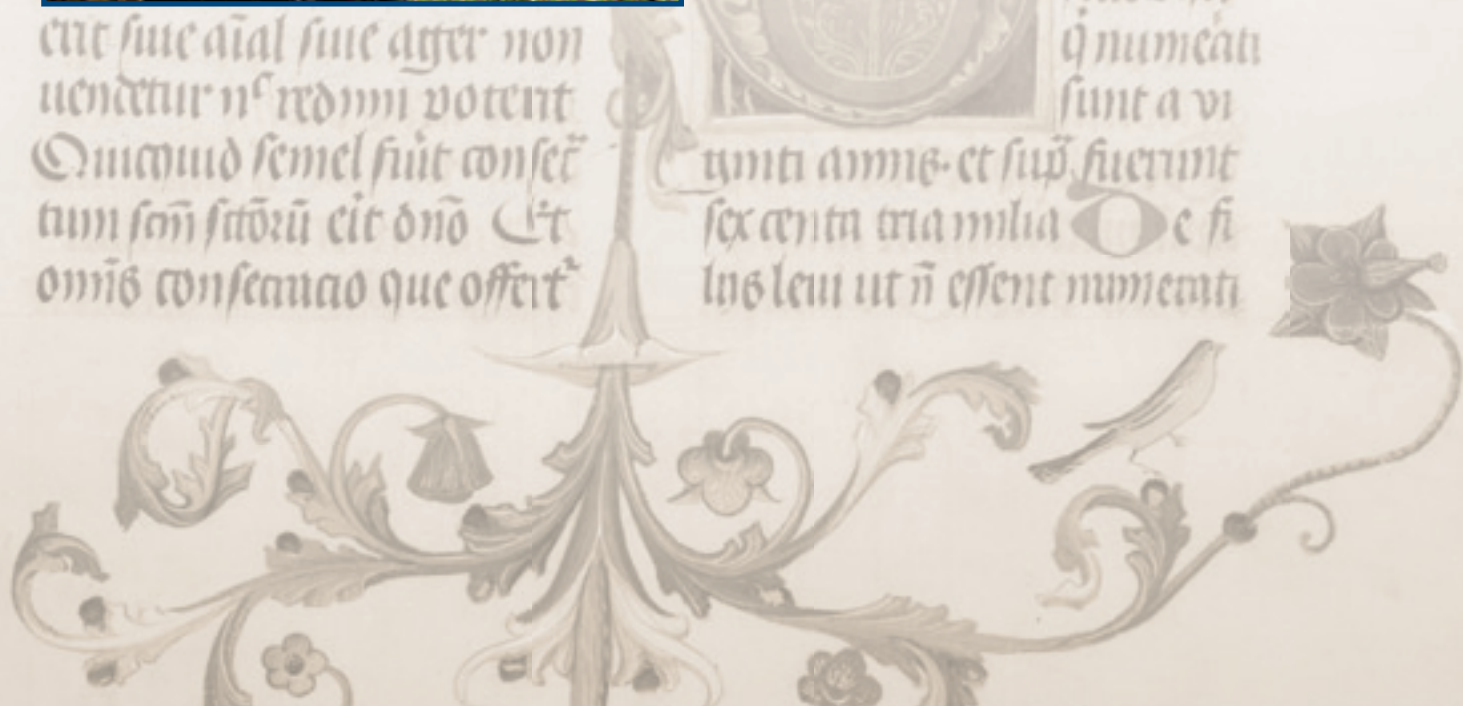 erit siue aīal siue ager non
uendetur nᶜ redimi poterit
Quicquid semel fuit consec̄
tum scm̄ sctōrū erit dnō Et
omīs consecracio que offert᷑
q̄ numerati
sunt a vi
ginti annis· et sup̄ fuerunt
sex centa tria milia De fi
lijs leui ut n̄ essent numerati